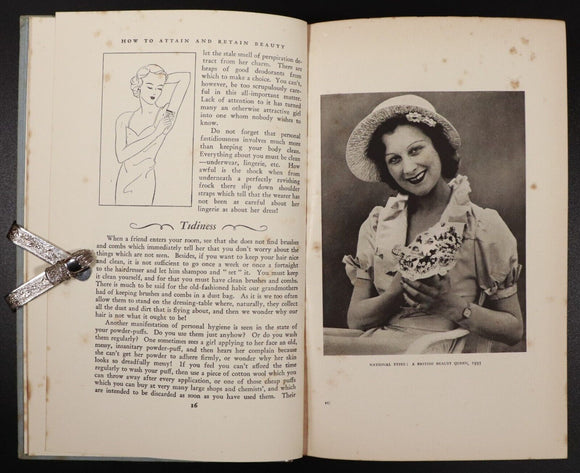 HOW TO ATTAIN AND RETAIN BEAUTY
let the stale smell of perspiration de-
tract from her charm. There are
heaps of good deodorants from
which to make a choice. You can't,
however, be too scrupulously care-
ful in this all-important matter.
Lack of attention to it has turned
many an otherwise attractive girl
into one whom nobody wishes to
know.
Do not forget that personal
fastidiousness involves much more
than keeping your body clean.
Everything about you must be clean
—underwear, lingerie, etc. How
awful is the shock when from
underneath a perfectly ravishing
frock there slip down shoulder
straps which tell that the wearer has
not been as careful about her
lingerie as about her dress!
Tidiness
When a friend enters your room, see that she does not find brushes
and combs which immediately tell her that you don't worry about the
things which are not seen. Besides, if you want to keep your hair nice
and clean, it is not sufficient to go once a week or once a fortnight
to the hairdresser and let him shampoo and "set" it. You must keep
it clean yourself, and for that you must have clean brushes and combs.
There is much to be said for the old-fashioned habit our grandmothers
had of keeping brushes and combs in a dust bag. As it is we too often
allow them to stand on the dressing-table where, naturally, they collect
all the dust and dirt that is flying about, and then we wonder why our
hair is not what it ought to be!
Another manifestation of personal hygiene is seen in the state of
your powder-puffs. Do you use them just anyhow? Or do you wash
them regularly? One sometimes sees a girl applying to her face an old,
messy, insanitary powder-puff, and then hears her complain because
she can't get her powder to adhere firmly, or wonder why her skin
looks so dreadfully messy! If you feel you can't afford the time
regularly to wash your puff, then use a piece of cotton wool which you
can throw away after every application, or one of those cheap puffs
which you can buy at very many large shops and chemists', and which
are intended to be discarded as soon as you have used them. Their
16
NATIONAL TYPES: A BRITISH BEAUTY QUEEN, 1935